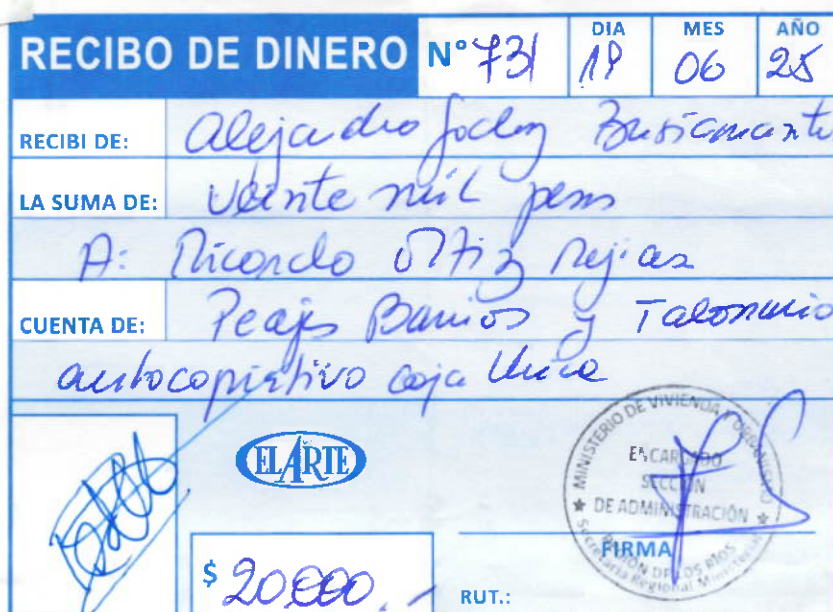 RECIBO DE DINERO N° 731 DIA 19 MES 06 AÑO 25
RECIBI DE: Alejandro Godoy Bustamante
LA SUMA DE: Veinte mil pesos
A: Ricardo Ortiz Mejias
CUENTA DE: Peajes Barrios y Talonario
autocopiativo caja Unica
EL ARTE
MINISTERIO DE VIVIENDA Y URBANISMO
ENCARGADO
SECCION
DE ADMINISTRACIÓN
REGION DE LOS RIOS
Secretaria Regional Ministerial
FIRMA
$ 20.000.-
RUT.: